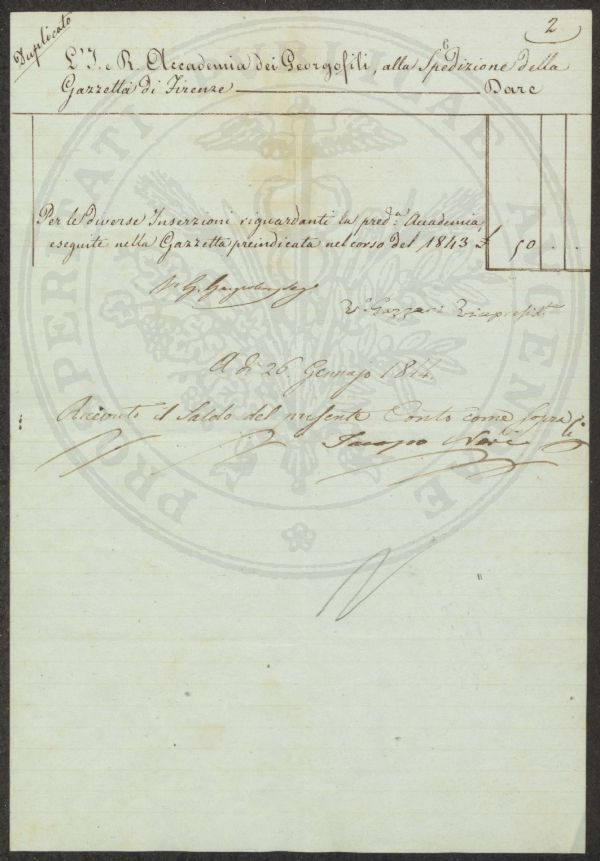 Duplicato
2
L'I. e R. Accademia dei Georgofili, alla Spedizione della
Gazzetta di Firenze ——— Dare
Per le diverse Inserzioni riguardanti la pred.a Accademia,
eseguite nella Gazzetta preindicata nel corso del 1843 £ 50 . .
V° G.
V° Gazzeri Vicepresid.te
A dì 26 Gennajo 1844.
Ricevuto il Saldo del presente Conto come sopra
Jacopo
PROSPERITATI PUBLICAE AUGENDAE